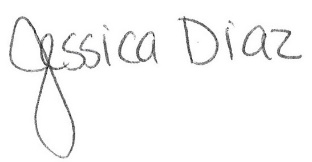 Jessica Diaz